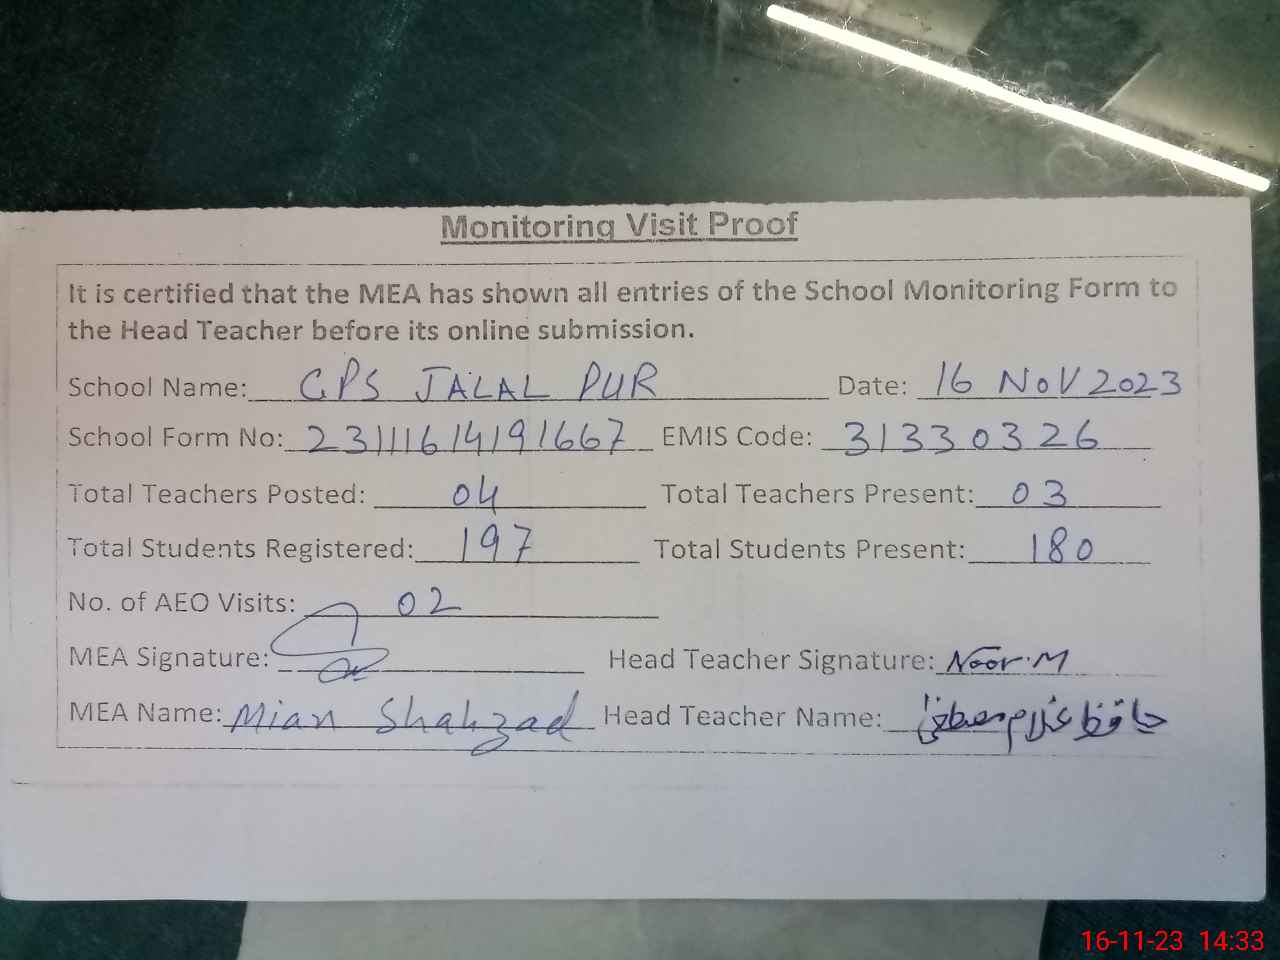 Monitoring Visit Proof
It is certified that the MEA has shown all entries of the School Monitoring Form to
the Head Teacher before its online submission.
School Name: GPS JALAL PUR Date: 16 NOV 2023
School Form No: 23111614191667 EMIS Code: 31330326
Total Teachers Posted: 04 Total Teachers Present: 03
Total Students Registered: 197 Total Students Present: 180
No. of AEO Visits: 02
MEA Signature: Head Teacher Signature: Noor.M
MEA Name: Mian Shahzad Head Teacher Name: حافظ غلام مصطفیٰ
16-11-23 14:33